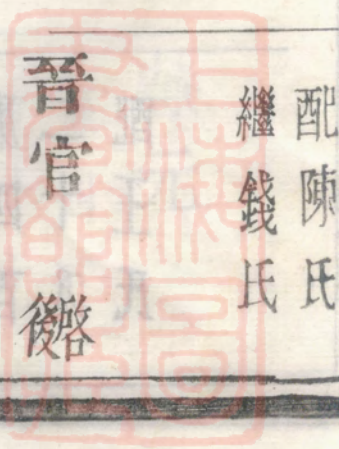 配陳氏
繼錢氏
晉官 啓後